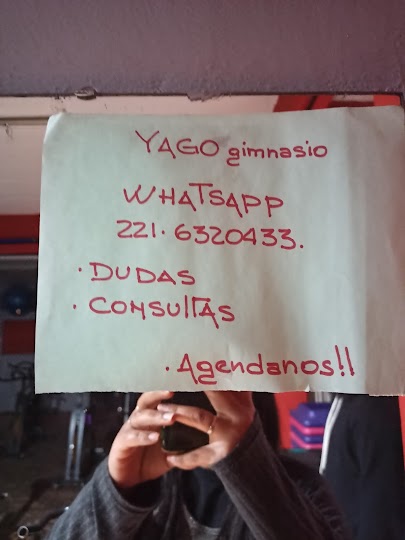 YAGO gimnasio
WHATSAPP
221·6320433.
· DUDAS
· CONSULTAS
· Agendanos!!